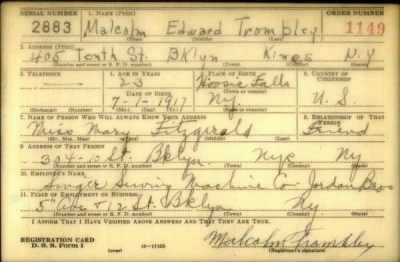 SERIAL NUMBER 1. NAME (Print) ORDER NUMBER
2883 Malcolm Edward Trombley 1149
(First) (Middle) (Last)
2. ADDRESS (Print)
405 Tenth St. Bklyn Kings N.Y
(Number and street or R. F. D. number) (Town) (County) (State)
3. TELEPHONE 4. AGE IN YEARS 5. PLACE OF BIRTH 6. COUNTRY OF CITIZENSHIP
23 Hoosic Falls
DATE OF BIRTH
7-1-1917 NY U. S.
(Exchange) (Number) (Mo.) (Day) (Yr.) (State or country)
7. NAME OF PERSON WHO WILL ALWAYS KNOW YOUR ADDRESS 8. RELATIONSHIP OF THAT PERSON
Miss Mary Fitzgerald Friend
(Mr., Mrs., Miss) (First) (Middle) (Last)
9. ADDRESS OF THAT PERSON
304-10 St. Bklyn. NY
(Number and street or R. F. D. number) (Town) (County) (State)
10. EMPLOYER'S NAME
Singer Sewing Machine Co Jordan Bros
11. PLACE OF EMPLOYMENT OR BUSINESS
5th Ave + 12 St. Bklyn NY
(Number and street or R. F. D. number) (Town) (County) (State)
I AFFIRM THAT I HAVE VERIFIED ABOVE ANSWERS AND THAT THEY ARE TRUE.
REGISTRATION CARD
D. S. S. FORM 1 (over) 16-17105 Malcolm Trombley